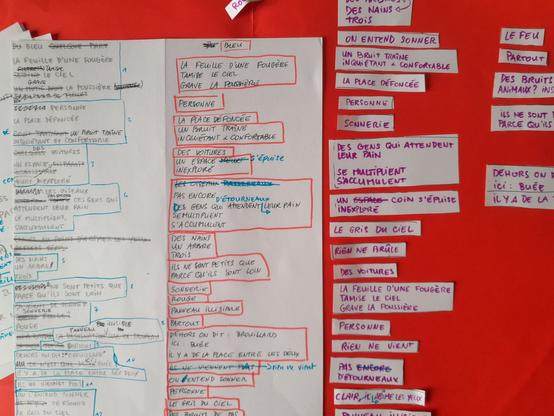 DU BLEU QUELQUE PART
LA FEUILLE D'UNE FOUGÈRE
LE CIEL
GRAVE
LA POUSSIÈRE
PERSONNE
LA PLACE DÉFONCÉE
UN BRUIT TRAÎNE
INQUIÉTANT & CONFORTABLE
DES
VOITURES
UN ESPACE
INEXPLORÉ
DES OISEAUX
DES GENS QUI
ATTENDENT LEUR PAIN
SE MULTIPLIENT
S'ACCUMULENT
DES NAINS
UN ARBRE
TROIS
ILS NE SONT PETITS QUE
PARCE QU'ILS SONT LOIN
SONNERIE
ROUGE
PANNEAU
ILLISIBLE
PARTOUT
DEHORS ON DIT: BROUILLARD
IL Y A DE LA PLACE ENTRE LES DEUX
RIEN NE VIENT
ON ENTEND SONNER
PERSONNE
LE GRIS DU CIEL
BLEU
LA FEUILLE D'UNE FOUGÈRE
TAMISE LE CIEL
GRAVE LA POUSSIÈRE
PERSONNE
LA PLACE DÉFONCÉE
UN BRUIT TRAÎNE
INQUIÉTANT & CONFORTABLE
DES VOITURES
UN ESPACE S'ÉPUISE
INEXPLORÉ
PAS ENCORE
D'ÉTOURNEAUX
DES GENS QUI ATTENDENT LEUR PAIN
SE MULTIPLIENT
S'ACCUMULENT
DES NAINS
UN ARBRE
TROIS
ILS NE SONT PETITS QUE
PARCE QU'ILS SONT LOIN
SONNERIE
ROUGE
PANNEAU ILLISIBLE
PARTOUT
DEHORS ON DIT: BROUILLARD
ICI: BUÉE
IL Y A DE LA PLACE ENTRE LES DEUX
RIEN NE VIENT PAS
rien ne vient
ON ENTEND SONNER
PERSONNE
LE GRIS DU CIEL
DES BRUITS DE PAS
DES NAINS
TROIS
ON ENTEND SONNER
UN BRUIT TRAÎNE
INQUIÉTANT & CONFORTABLE
LA PLACE DÉFONCÉE
PERSONNE
SONNERIE
DES GENS QUI ATTENDENT
LEUR PAIN
SE MULTIPLIENT
S'ACCUMULENT
UN ESPACE COIN S'ÉPUISE
INEXPLORÉ
LE GRIS DU CIEL
RIEN NE BRÛLE
DES VOITURES
LA FEUILLE D'UNE FOUGÈRE
TAMISE LE CIEL
GRAVE LA POUSSIÈRE
PERSONNE
RIEN NE VIENT
PAS ENCORE
D'ÉTOURNEAUX
LES YEUX
LE FEU
PARTOUT
DES BRUITS
ANIMAUX?
ILS NE SONT
PARCE QU'ILS
DEHORS ON
ici: BUÉE
IL Y A DE LA